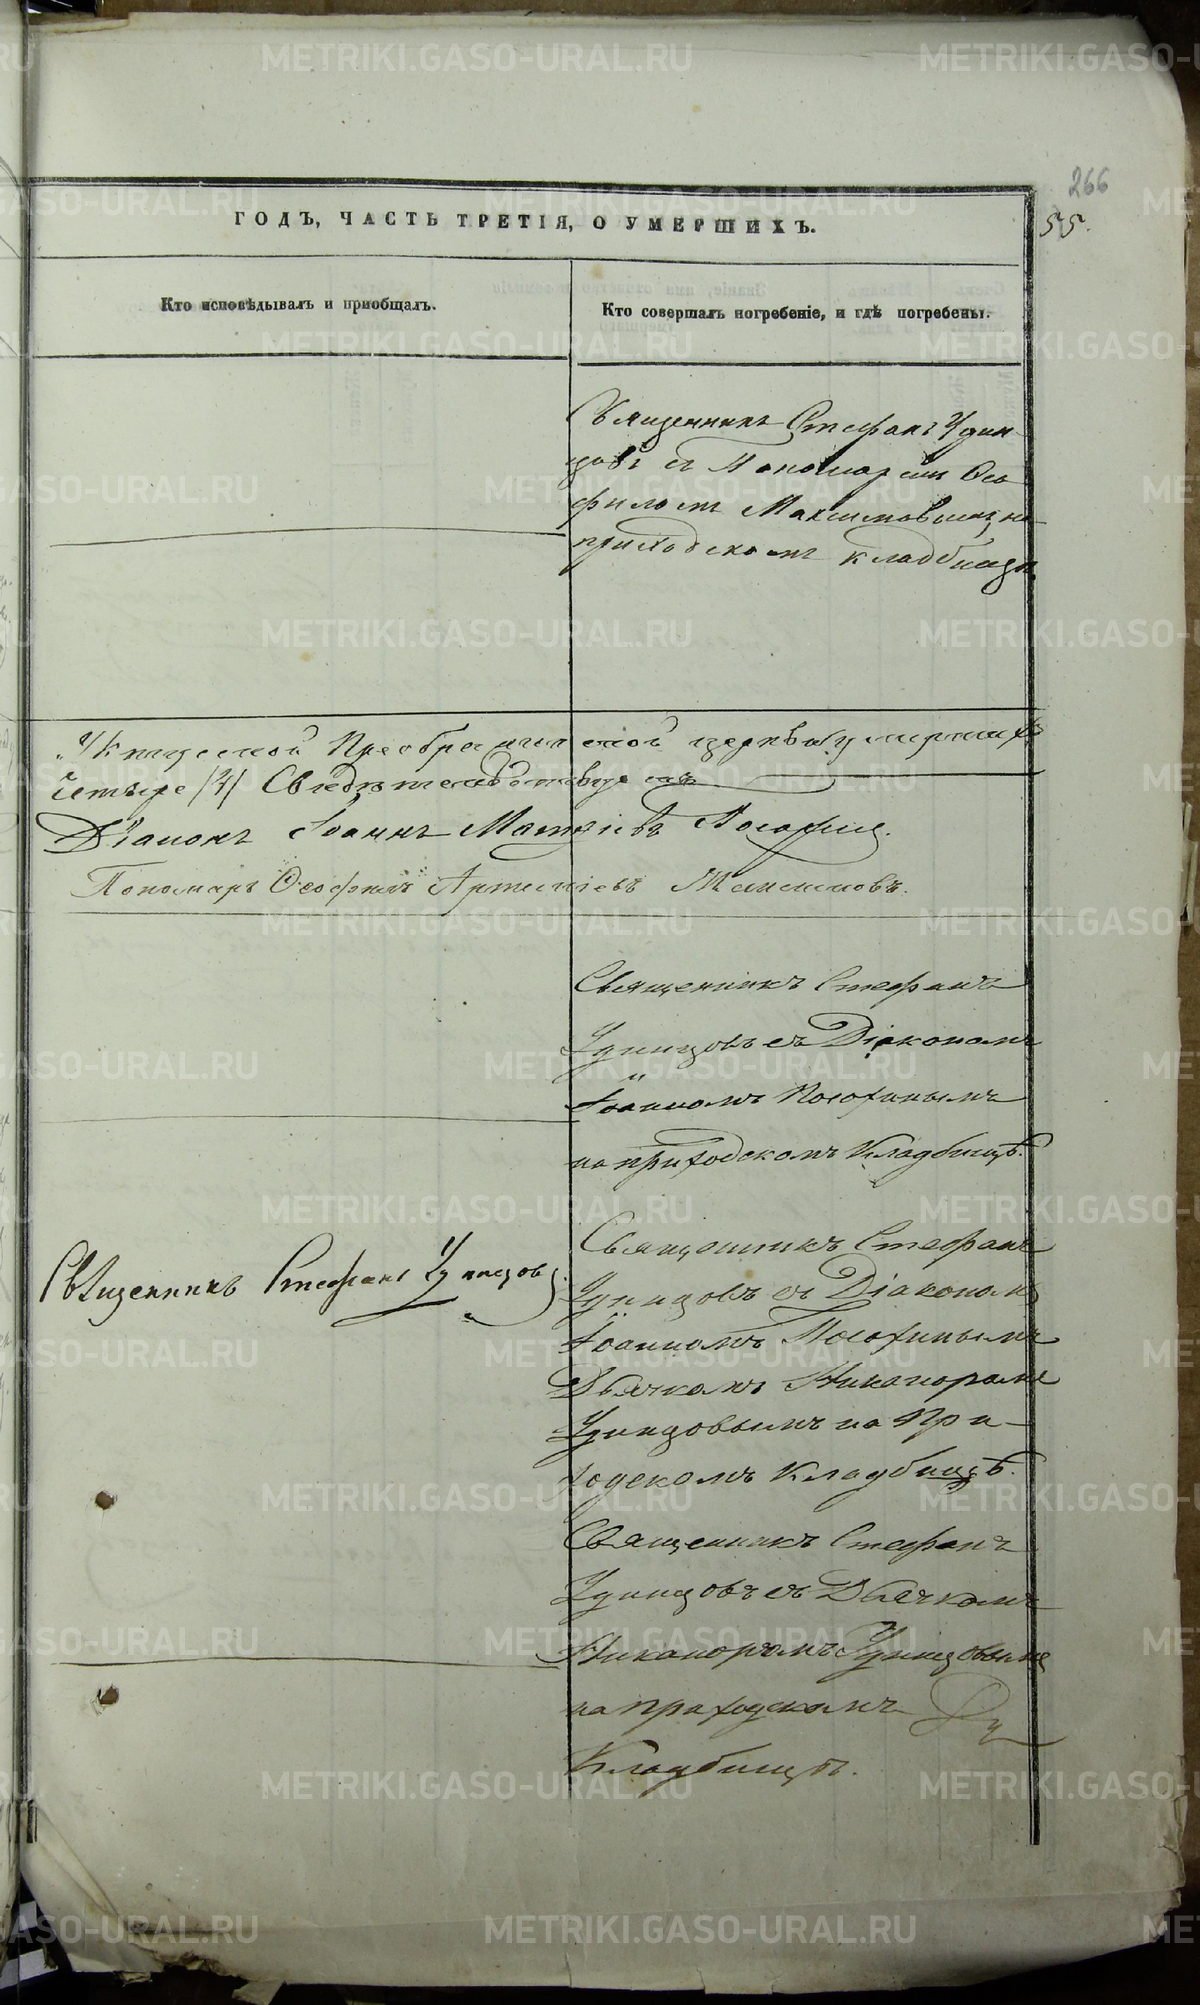 266
ГОДЪ, ЧАСТЬ ТРЕТІЯ, О УМЕРШИХЪ.
55.
Кто исповѣдывалъ и приобщалъ.
Кто совершалъ погребеніе, и гдѣ погребены.
Священникъ Стефанъ Удин-
цовъ съ Пономаремъ Ѳео
филомъ Максимовымъ, на
приходскомъ кладбищѣ.
Преображенской церкви умершихъ
четыре /4/ Свидѣтельствуемъ
Діаконъ Іоаннъ Матѳіевъ
Пономарь Ѳеофилъ Артемьевъ Максимовъ.
Священникъ Стефанъ
Удинцовъ съ Діакономъ
Іоанномъ
на приходскомъ Кладбищѣ.
Священникъ Стефанъ Удинцовъ.
Священникъ Стефанъ
Удинцовъ съ Діакономъ
Іоанномъ
Дьячкомъ Никаноромъ
Удинцовымъ на При-
ходскомъ Кладбищѣ.
Священникъ Стефанъ
Удинцовъ съ Дьячкомъ
Никаноромъ Удинцовымъ
на приходскомъ
Кладбищѣ.
METRIKI.GASO-URAL.RU